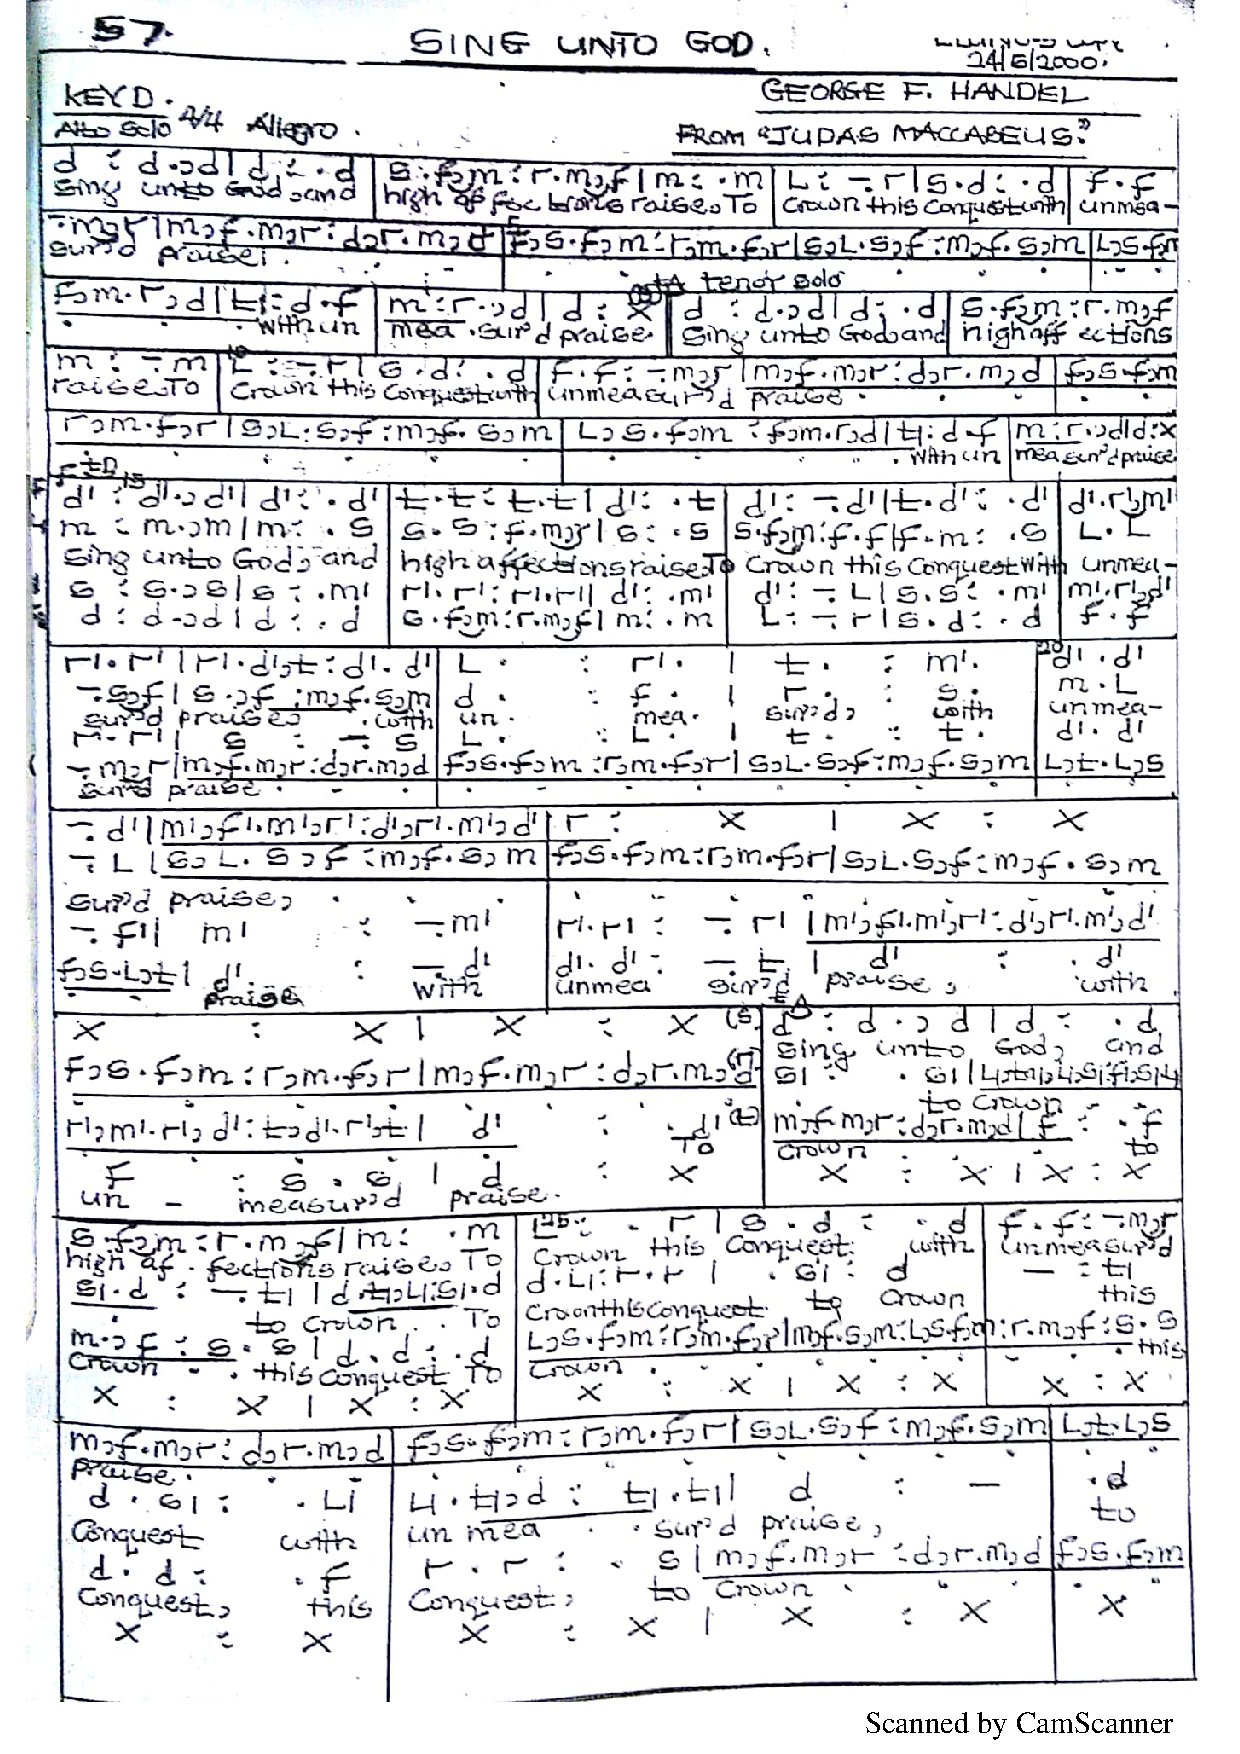 57.
SING UNTO GOD.
24/6/2000.
KEY D. 4/4 Allegro.
GEORGE F. HANDEL
Alto Solo
FROM "JUDAS MACCABEUS."
d : d.,d | d : . d | s.f,m : r.m,f | m : . m | L : -. r | s.d : . d | f.f
Sing unto God, and high affections raise, To Crown this conquest with unmea-
-.m,r | m,f.m,r : d,r.m,d | f,s.f,m : r,m.f,r | s,L.s,f : m,f.s,m | L,s.f,m
sur'd praise.
tA tenor solo
f,m.r,d | t1 : d.f | m : r.,d | d : X | d : d.,d | d : . d | s.f,m : r.m,f
with un mea sur'd praise. Sing unto God, and high affections
m : -. m | L : -. r | s.d : . d | f.f : -.m,r | m,f.m,r : d,r.m,d | f,s.f,m
raise, To Crown this Conquest with unmeasur'd praise.
r,m.f,r | s,L.s,f : m,f.s,m | L,s.f,m : f,m.r,d | t1 : d.f | m : r.,d | d : X
with un measur'd praise
f tD 15
d' : d'.,d' | d' : . d' | t.t : t.t | d' : . t | d' : -. d' | t.d' : . d' | d'.r',m'
m : m.,m | m : . s | s.s : f.m,r | s : . s | s.f,m : f.f | f.m : . s | L.L
Sing unto God, and high affections raise, To Crown this Conquest With unmea-
s : s.,s | s : . m' | r'.r' : r'.r' | d' : . m' | d' : -. L | s.s : . m' | m'.r',d'
d : d.,d | d : . d | s.f,m : r.m,f | m : . m | L : -. r | s.d : . d | f.f
r'.r' | r'.d',t : d'.d' | L . : r'. | t. : m'. | 20 d'.d'
-.s,f | s.,f : m,f.s,m | d. : f. | r. : s. | m.L
sur'd praise, with un. mea. sur'd, with unmea-
r'.r' | s : -. s | L. : L. | t. : t. | d'.d'
-.m,r | m,f.m,r : d,r.m,d | f,s.f,m : r,m.f,r | s,L.s,f : m,f.s,m | L,t.L,s
sur'd praise.
-.d' | m',f'.m',r' : d',r'.m',d' | r : X | X : X
-.L | s,L.s,f : m,f.s,m | f,s.f,m : r,m.f,r | s,L.s,f : m,f.s,m
sur'd praise,
-.f' | m' : -.m' | r'.r' : -. r' | m',f'.m',r' : d',r'.m',d'
f,s.L,t | d' : -.d' | d'.d' : -. t | d' : . d'
praise with unmea sur'd praise, with
X : X | X : X (s) | tA d : d.,d | d : . d
Sing unto God, and
f,s.f,m : r,m.f,r | m,f.m,r : d,r.m,d
to Crown
r',m'.r',d' : t,d'.r',t | d' : . d' (t) | m,f.m,r : d,r.m,d | f : . f
To Crown to
F : s.s | d : X | X : X | X : X
un - measur'd praise.
s.f,m : r.m,f | m : . m | 25 L : . r | s.d : . d | f.f : -.m,r
high af. fections raise, To Crown this Conquest with unmeasur'd
s1.d : -.t1 | d.t1,L1 : s1.d | d.L1 : r.r | . s1 : d | - : t1
to Crown. To Crown this conquest to Crown this
m.,f : s.s | d.d : . d | L,s.f,m : r,m.f,r | m,f.s,m : L,s.f,m : r.m,f : s.s
Crown this Conquest To Crown this
X : X | X : X | X : X | X : X | X : X
m,f.m,r : d,r.m,d | f,s.f,m : r,m.f,r | s,L.s,f : m,f.s,m | L,t.L,s
praise.
d.s1 : . L1 | L1.t1,d : t1.t1 | d : - | . d
Conquest with un mea sur'd praise, to
d.d : . f | r.r : . s | m,f.m,r : d,r.m,d | f,s.f,m
Conquest, this Conquest, to Crown
X : X | X : X | X : X | X
Scanned by CamScanner